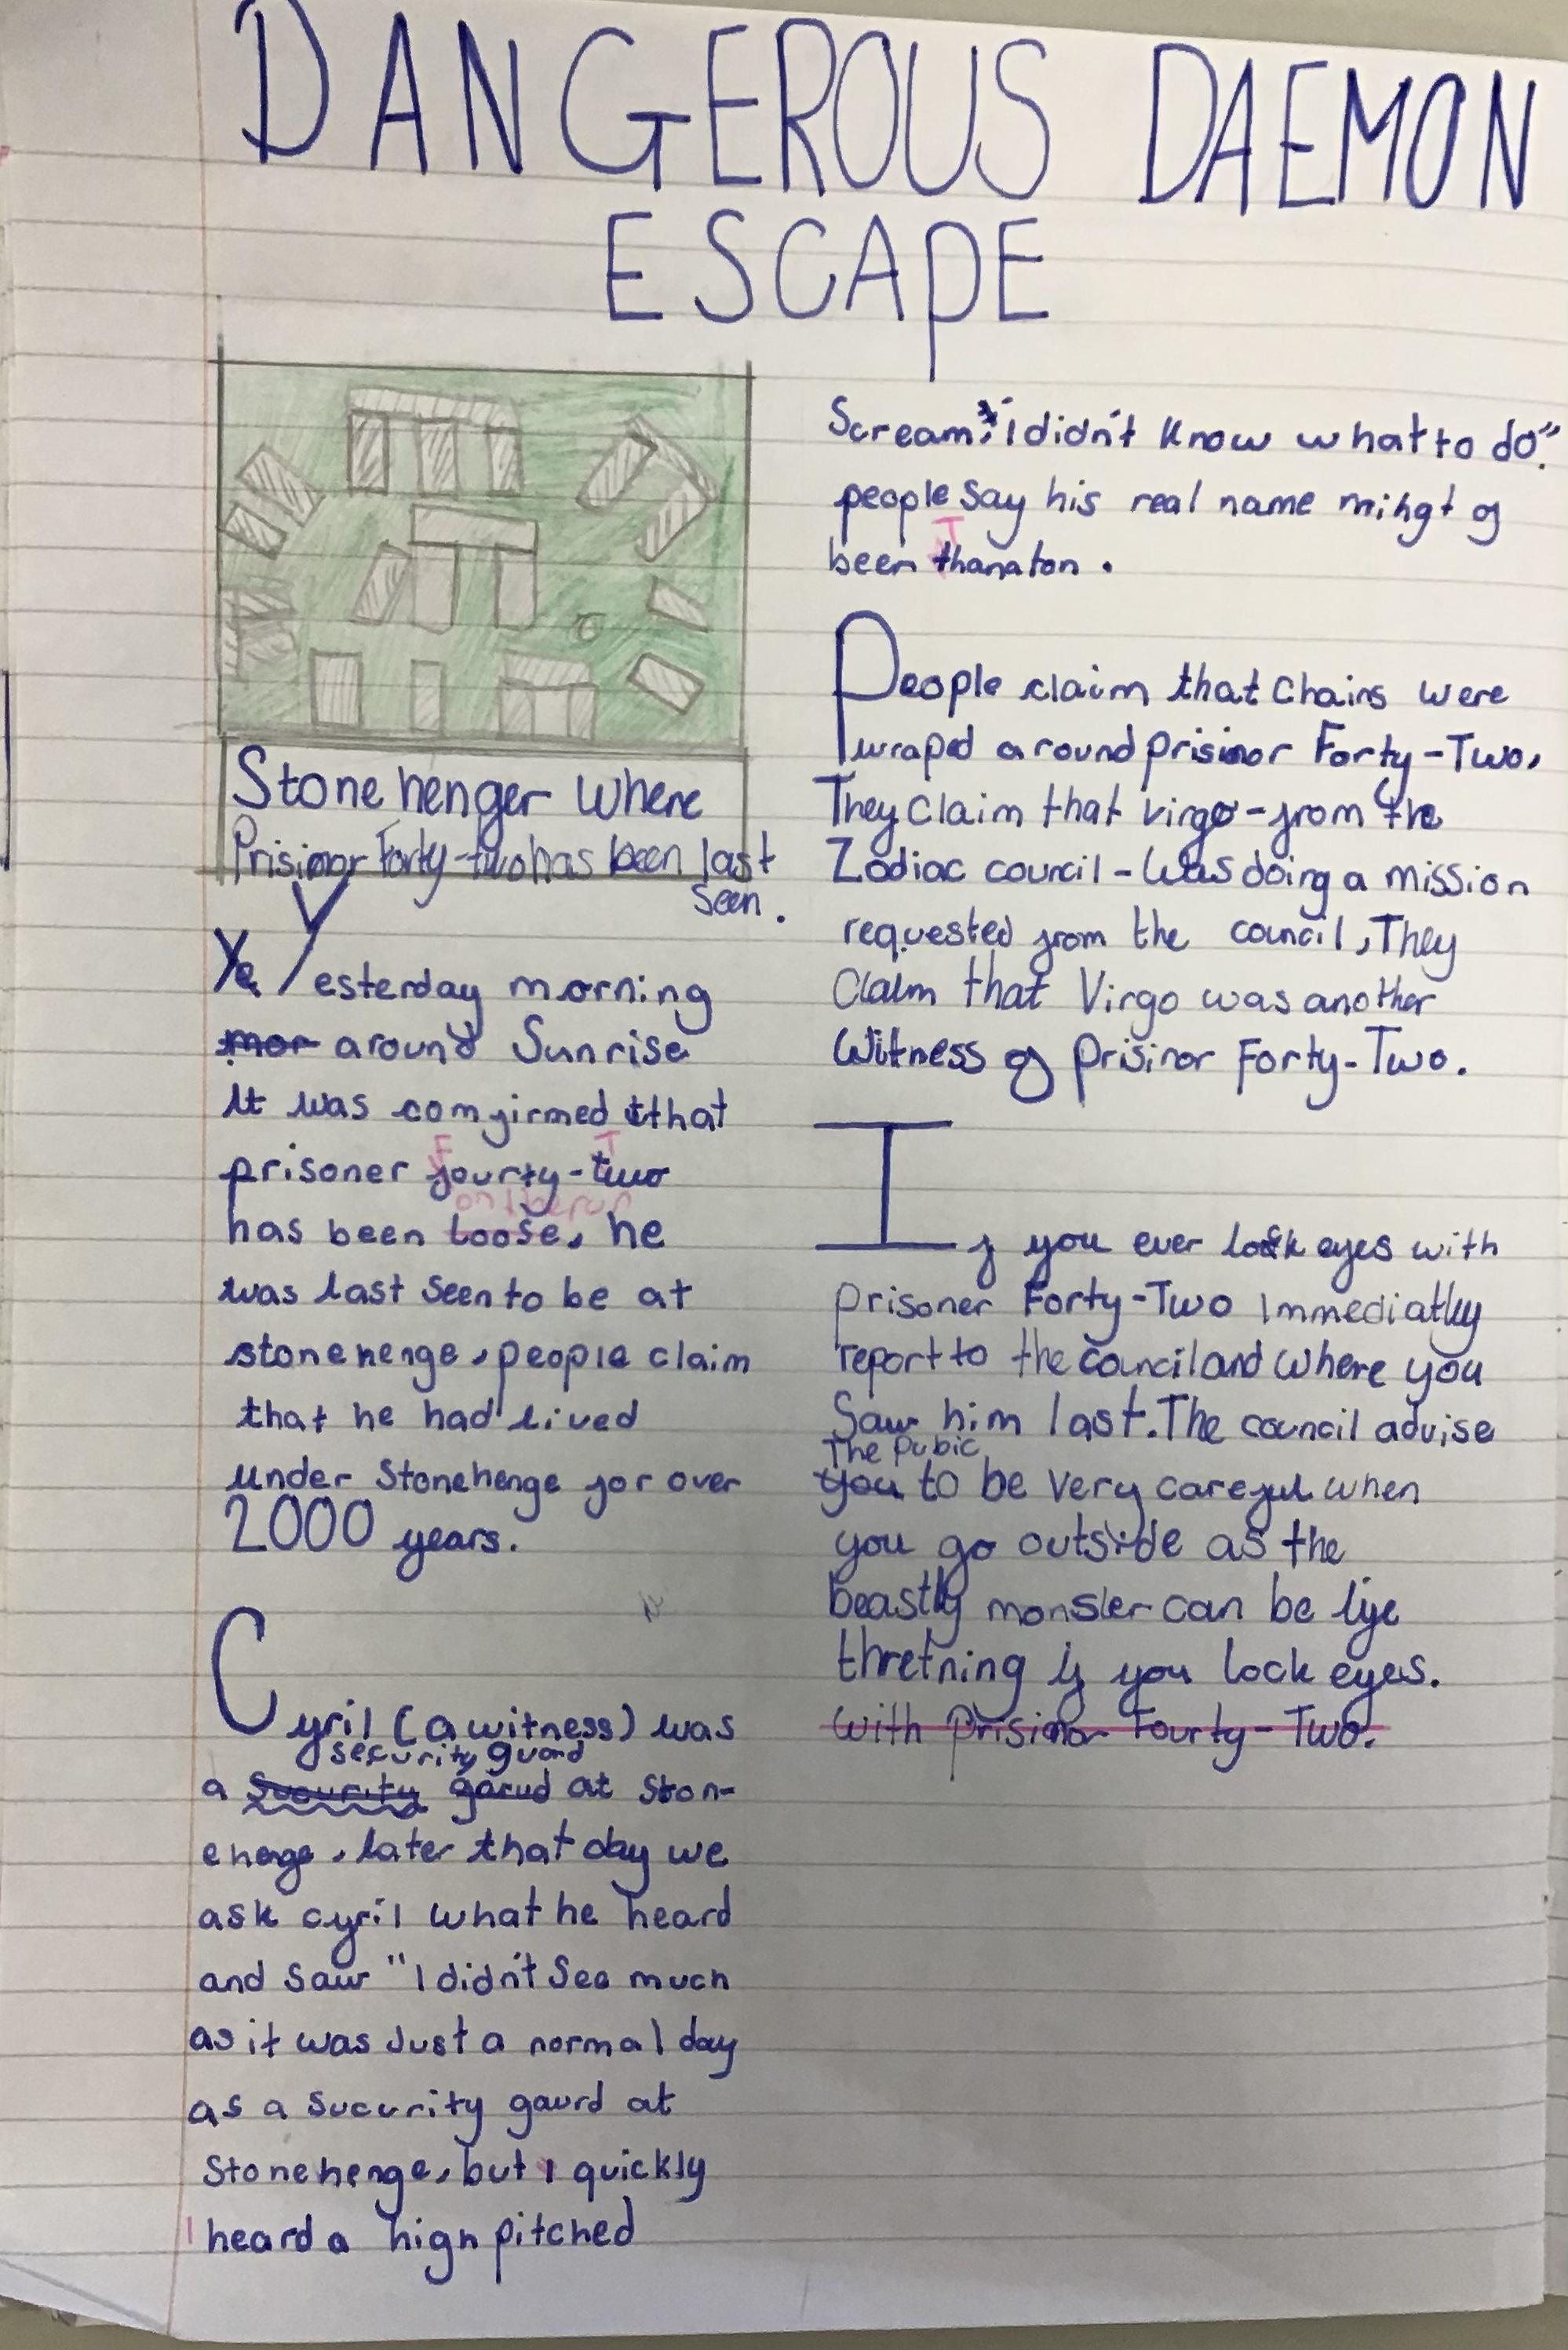 DANGEROUS DAEMON
ESCAPE
Stonehenger where
Prisinor Forty-two has been last
seen.
Ye Yesterday morning
mor around Sunrise
it was comfirmed that
prisoner fourty-two
F T
on the run
has been loose, he
was last seen to be at
stonehenge, people claim
that he had lived
under Stonehenge for over
2000 years.
Cyril (a witness) was
security guard
a Sucurity garud at Ston-
ehenge, later that day we
ask cyril what he heard
and saw "I didn't see much
as it was Just a normal day
as a sucurity gaurd at
Stonehenge, but I quickly
I heard a high pitched
Scream, "i didn't know what to do".
people say his real name mihgt of
T
been thanaton.
People claim that Chains were
wraped around prisinor Forty-Two,
They claim that virgo-from the
Zodiac council-Was doing a mission
requested from the council, They
Claim that Virgo was another
Witness of prisinor Forty-Two.
If you ever lock eyes with
prisoner Forty-Two Immediatley
report to the council and where you
Saw him last. The council advise
The Pubic
you to be very careful when
you go outside as the
beastly monster can be life
thretning if you lock eyes.
with prisinor Fourty-Two.